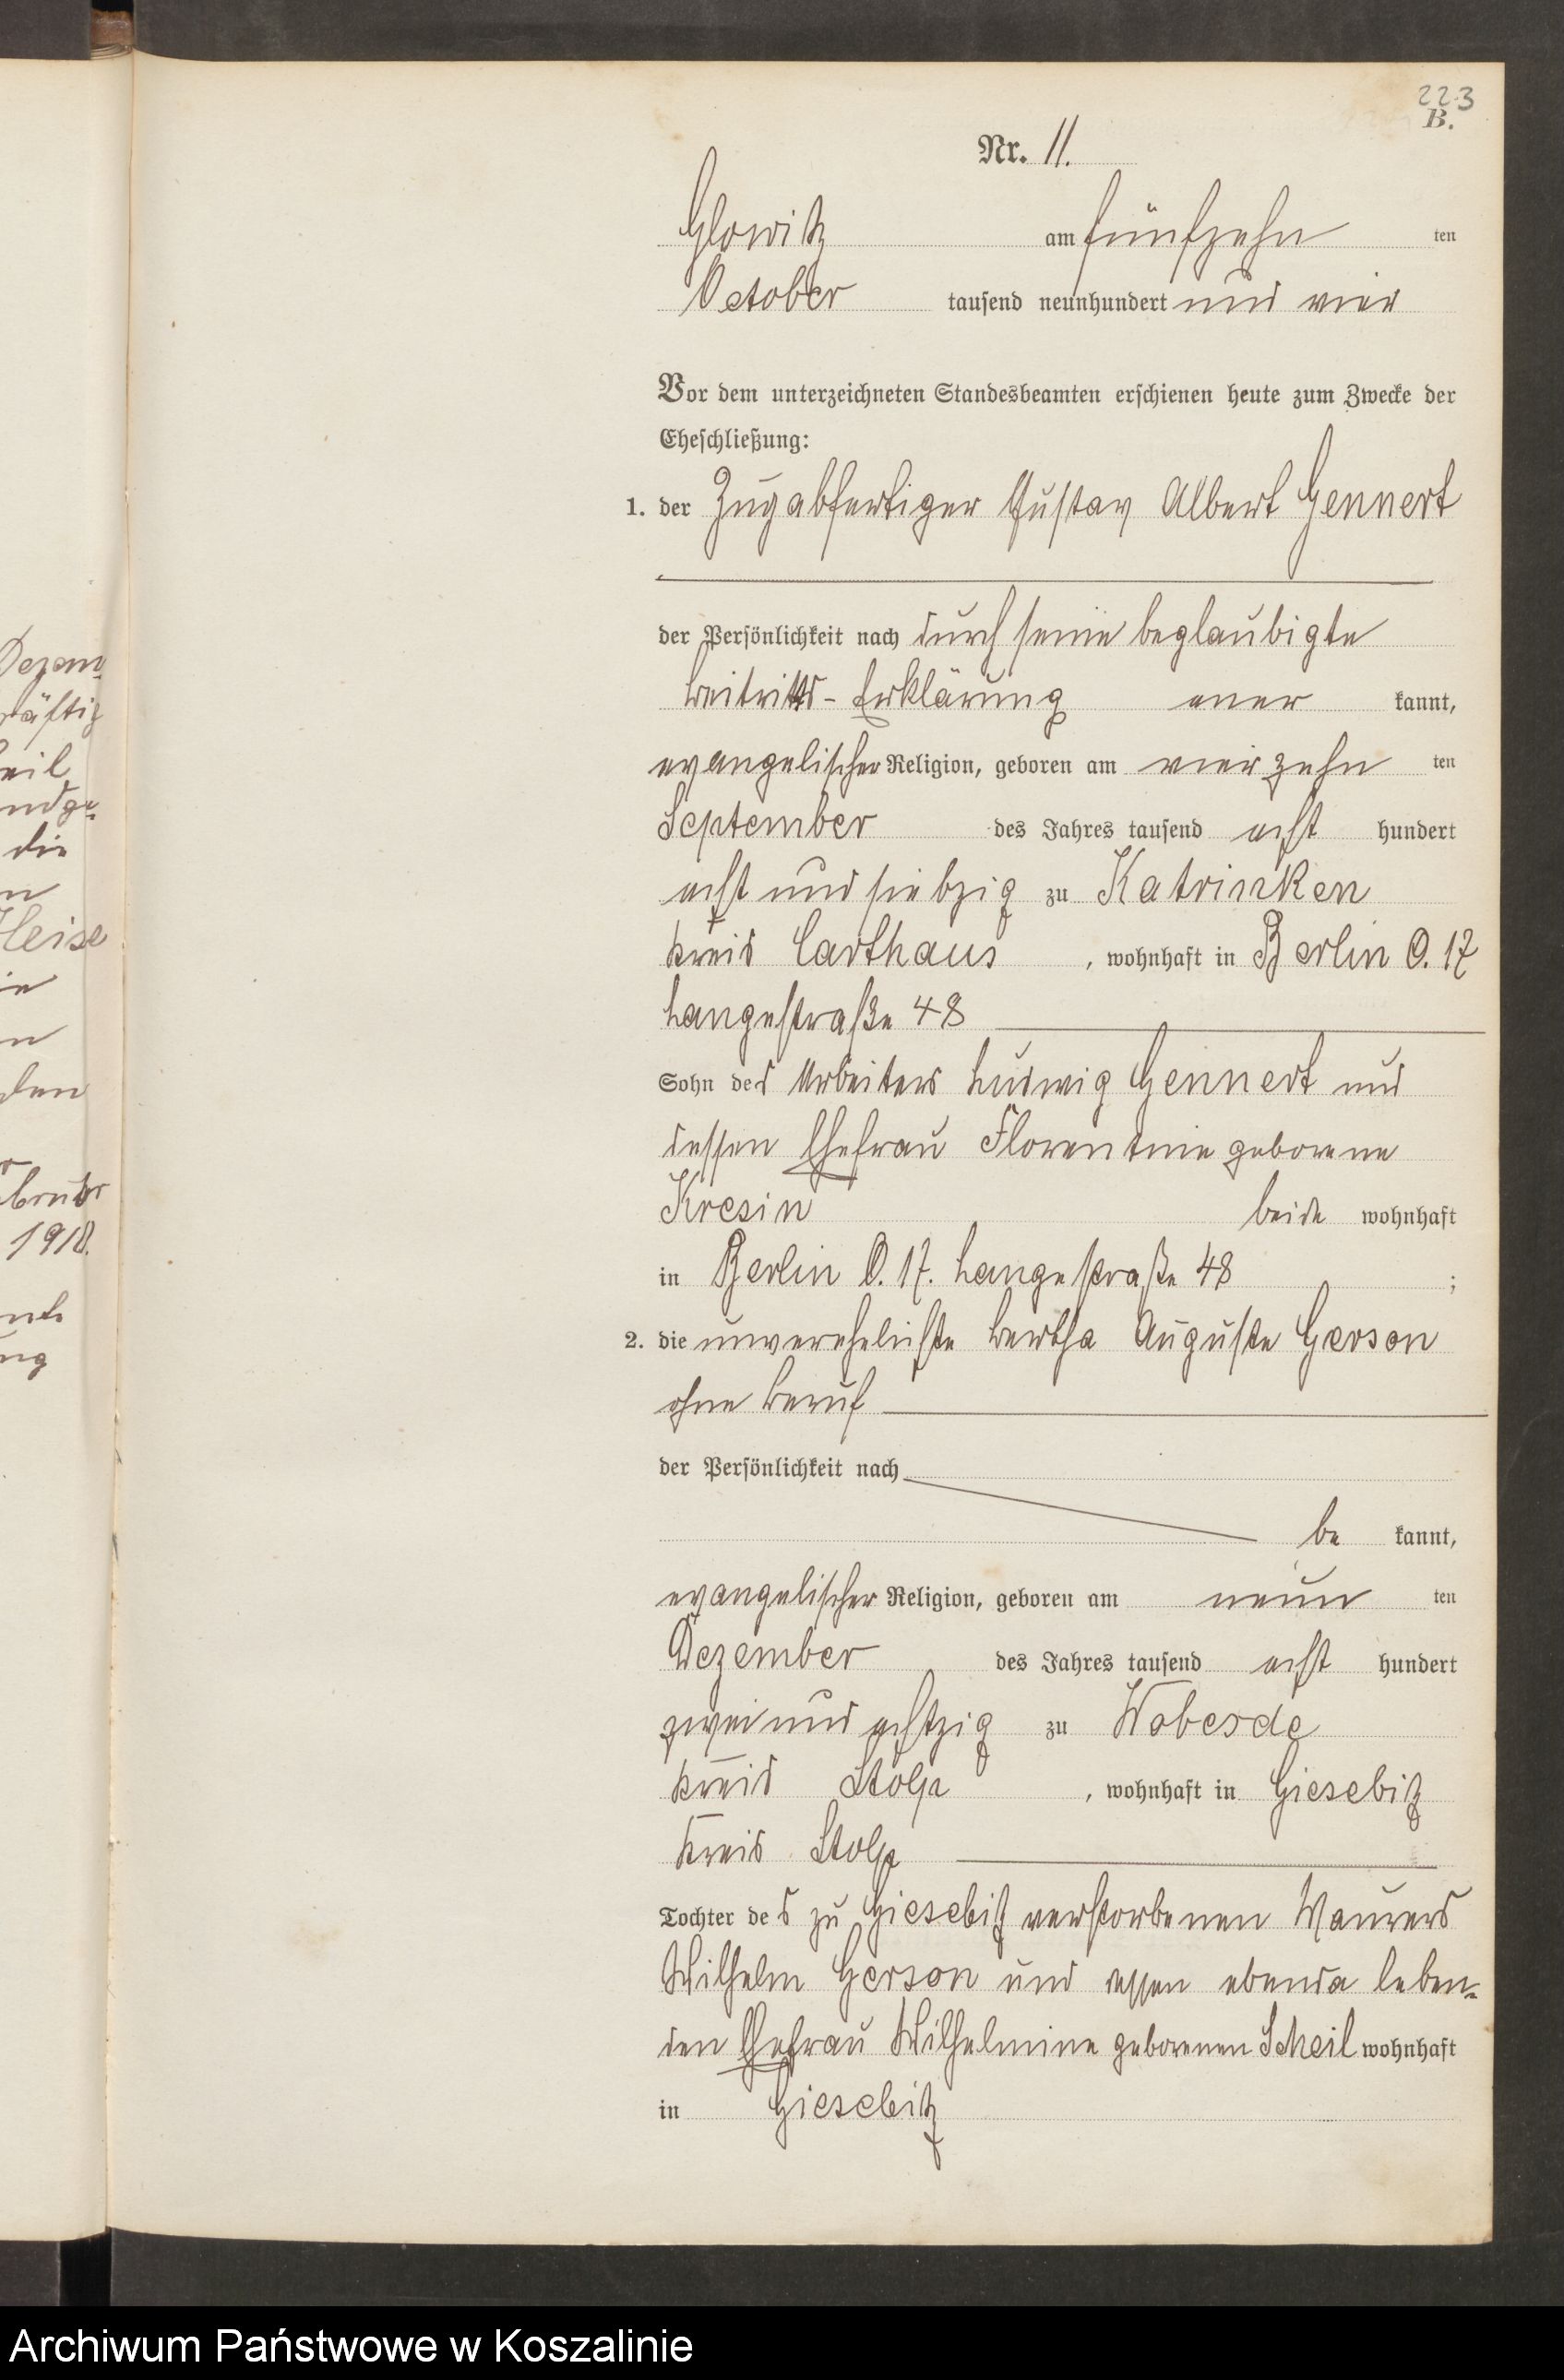 223
B.
Nr. 11.
Glowitz am fünfzehn ten
October tausend neunhundert und vier
Vor dem unterzeichneten Standesbeamten erschienen heute zum Zwecke der
Eheschließung:
1. der Zugabfertiger Gustav Albert Gennert
der Persönlichkeit nach durch seine beglaubigte
Beitritts-Erklärung aner kannt,
evangelischer Religion, geboren am vierzehn ten
September des Jahres tausend acht hundert
acht und siebzig zu Katrinken
Kreis Carthaus, wohnhaft in Berlin O. 17
Langestraße 48
Sohn des Arbeiters Ludwig Gennert und
dessen Ehefrau Florentine geborene
Kresin beide wohnhaft
in Berlin O. 17. Langestraße 48 ;
2. die unverehelichte Bertha Auguste Gerson
ohne Beruf
der Persönlichkeit nach
be kannt,
evangelischer Religion, geboren am neun ten
Dezember des Jahres tausend acht hundert
zwei und achtzig zu Wobesde
Kreis Stolp, wohnhaft in Giesebitz
Kreis Stolp
Tochter des zu Giesebitz verstorbenen Maurers
Wilhelm Gerson und dessen ebenda leben-
den Ehefrau Wilhelmine geborenen Scheil wohnhaft
in Giesebitz
Dezem
kräftig
eil
die
n
Heise
n
den
1918.
ng
Archiwum Państwowe w Koszalinie